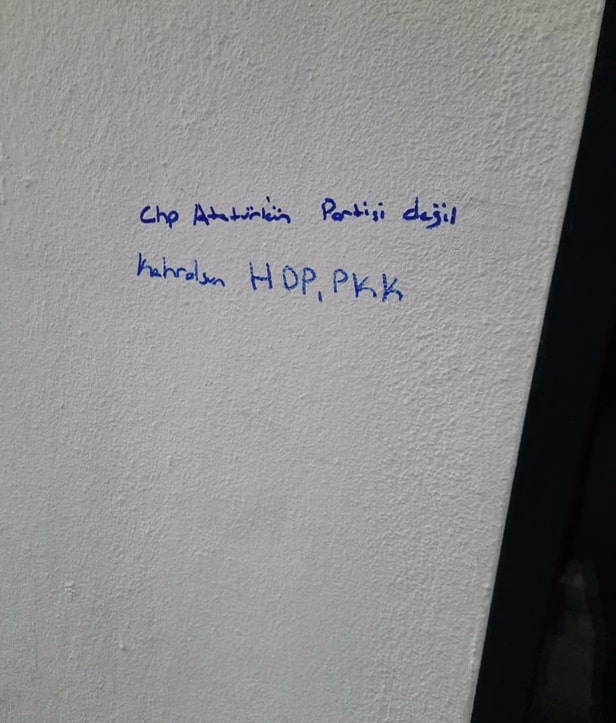 Chp Atatürkün Partisi değil
Kahrolsun HDP, PKK